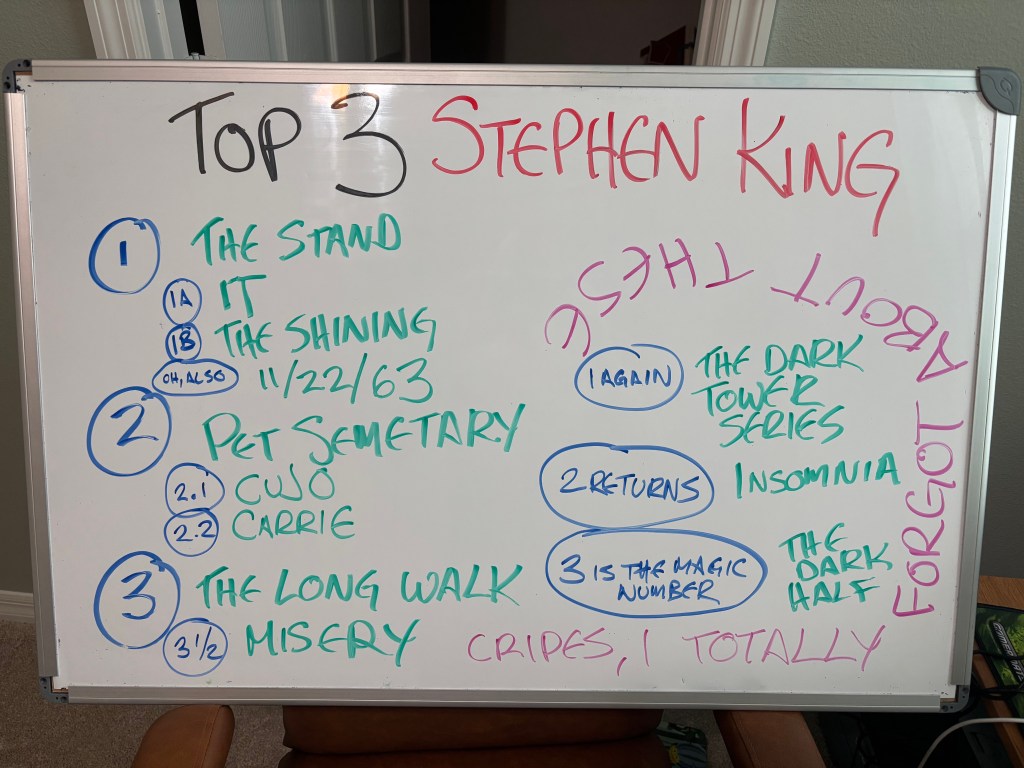 TOP 3 STEPHEN KING
1 THE STAND
1A IT
1B THE SHINING
OH, ALSO 11/22/63
2 PET SEMETARY
2.1 CUJO
2.2 CARRIE
3 THE LONG WALK
3 1/2 MISERY
CRIPES, I TOTALLY
FORGOT
ABOUT
THESE
1 AGAIN THE DARK
TOWER
SERIES
2 RETURNS INSOMNIA
3 IS THE MAGIC
NUMBER
THE
DARK
HALF